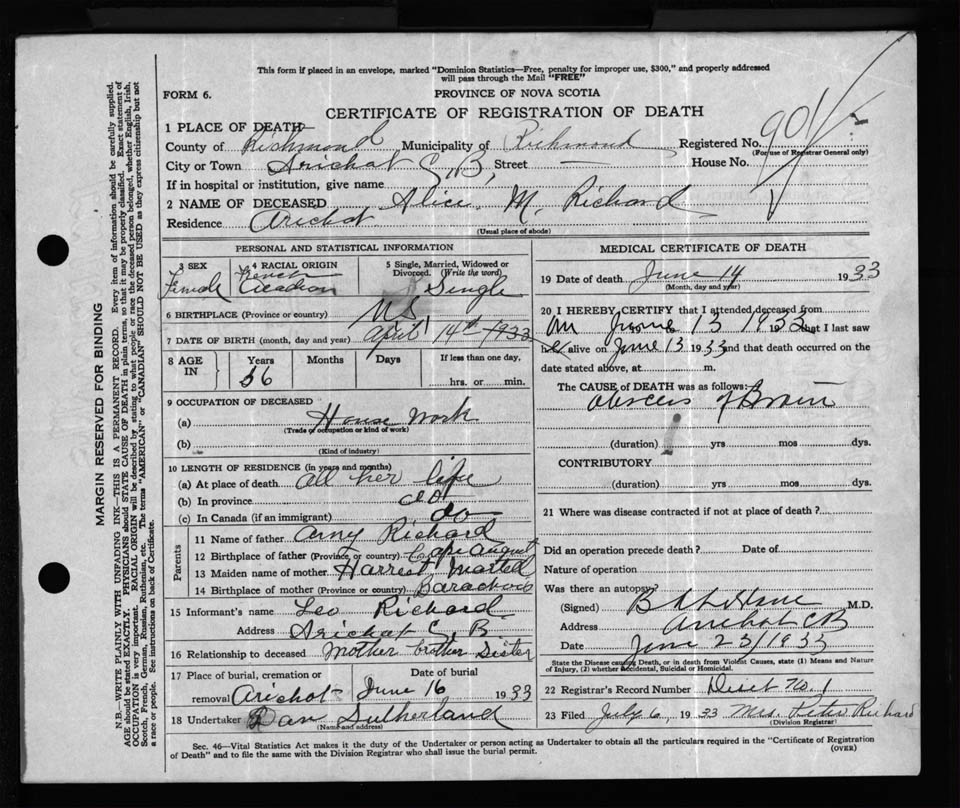 This form if placed in an envelope, marked "Dominion Statistics—Free, penalty for improper use, $300," and properly addressed
will pass through the Mail "FREE"
FORM 6. PROVINCE OF NOVA SCOTIA
CERTIFICATE OF REGISTRATION OF DEATH
1 PLACE OF DEATH
County of Richmond Municipality of Richmond Registered No. 901
(For use of Registrar General only)
City or Town Arichat C, B, Street — House No.
If in hospital or institution, give name
2 NAME OF DECEASED Alice. M. Richard
Residence Arichat
(Usual place of abode)
PERSONAL AND STATISTICAL INFORMATION
3 SEX Female
4 RACIAL ORIGIN French
5 Single, Married, Widowed or Divorced. (Write the word) Single
6 BIRTHPLACE (Province or country) NS
7 DATE OF BIRTH (month, day and year) April 14th 1933
8 AGE IN Years Months Days If less than one day,
56 hrs. or min.
9 OCCUPATION OF DECEASED
(a) House Work
(Trade or occupation or kind of work)
(b)
(Kind of industry)
10 LENGTH OF RESIDENCE (in years and months)
(a) At place of death all her life
(b) In province do
(c) In Canada (if an immigrant) do
Parents
11 Name of father Amy Richard
12 Birthplace of father (Province or country) Cape August
13 Maiden name of mother Harriet Martell
14 Birthplace of mother (Province or country) Barachois
15 Informant's name Leo Richard
Address Arichat C, B
16 Relationship to deceased Mother brother Sister
17 Place of burial, cremation or removal Arichat Date of burial June 16 1933
18 Undertaker Dan Sutherland
(Name and address)
MEDICAL CERTIFICATE OF DEATH
19 Date of death June 14 1933
(Month, day and year)
20 I HEREBY CERTIFY that I attended deceased from
June 13 1933 that I last saw
her alive on June 13 1933 and that death occurred on the
date stated above, at m.
The CAUSE OF DEATH was as follows:
abscess of Brain
(duration) yrs mos dys.
CONTRIBUTORY
(duration) yrs mos dys.
21 Where was disease contracted if not at place of death?
Did an operation precede death? Date of
Nature of operation
Was there an autopsy?
(Signed) M.D.
Address Arichat CB
Date June 23/1933
State the Disease causing Death, or in death from Violent Causes, state (1) Means and Nature
of Injury, (2) whether Accidental, Suicidal or Homicidal.
22 Registrar's Record Number Dist No. 1
23 Filed July 6, 1933 Mrs. Peter Richard
(Division Registrar)
Sec. 46—Vital Statistics Act makes it the duty of the Undertaker or person acting as Undertaker to obtain all the particulars required in the "Certificate of Registration
of Death" and to file the same with the Division Registrar who shall issue the burial permit. (OVER)
MARGIN RESERVED FOR BINDING
N.B.—WRITE PLAINLY WITH UNFADING INK—THIS IS A PERMANENT RECORD. Every item of information should be carefully supplied.
AGE should be stated EXACTLY. PHYSICIANS should STATE CAUSE OF DEATH in plain terms, so that it may be properly classified. Exact statement of
OCCUPATION is very important. RACIAL ORIGIN will be described by stating to what people or race the deceased person belonged, whether English, Irish,
Scotch, French, German, Russian, Ruthenian, etc. The terms "AMERICAN" or "CANADIAN" SHOULD NOT BE USED as they express citizenship but not
a race or people. See instructions on back of Certificate.